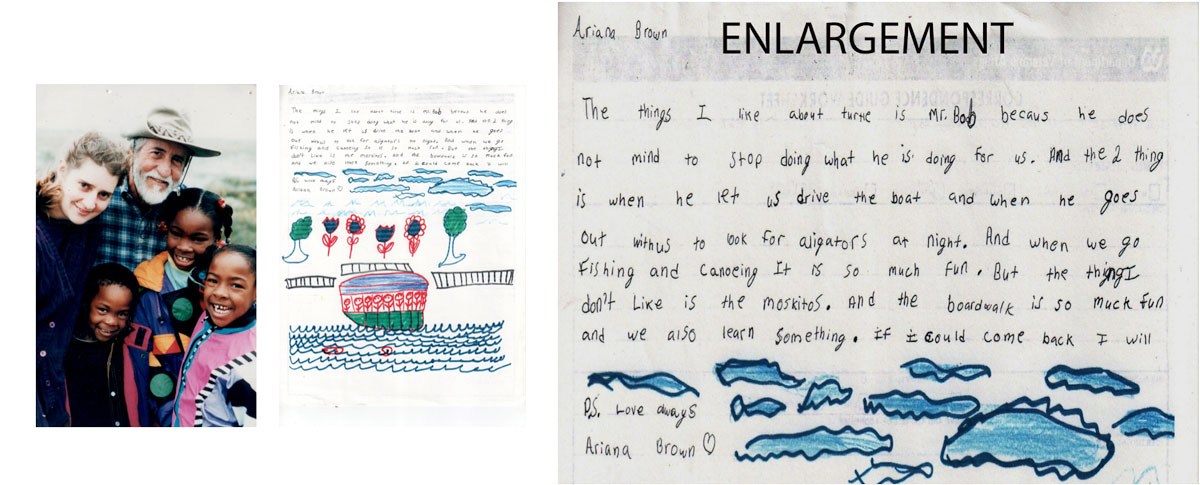 Ariana Brown
ENLARGEMENT
The things I like about turtle is Mr. Bob becaus he does
not mind to stop doing what he is doing for us. And the 2 thing
is when he let us drive the boat and when he goes
out withus to look for aligators at night. And when we go
Fishing and Canoeing It is so much fun. But the thingI
don't Like is the moskitos. And the boardwalk is so much fun
and we also learn Something. If I Could come back I will
P.S. Love always
Ariana Brown ♡